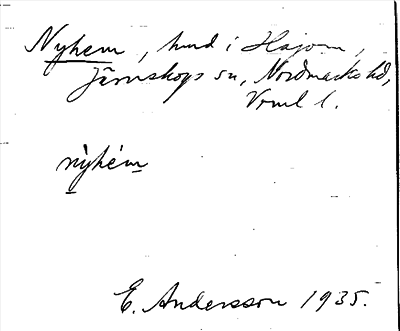 Nyhem, hmd i Hajom,
Järnskogs sn, Nordmarks hd,
Vrml l.
nỳhém
E. Andersson 1935.